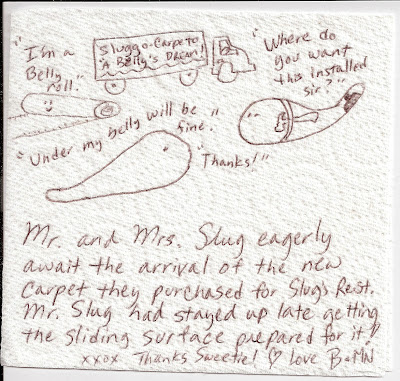 "I'm a
Belly
roll."
Slugg-o-Carpeto
"A Belly's Dream!"
"Where do
you want
this installed
sir?"
"Under my belly will be
fine."
"Thanks!"
Mr. and Mrs. Slug eagerly
await the arrival of the new
carpet they purchased for Slug's Rest.
Mr. Slug had stayed up late getting
the sliding surface prepared for it!
xxox Thanks Sweetie! ♡ love B+MN